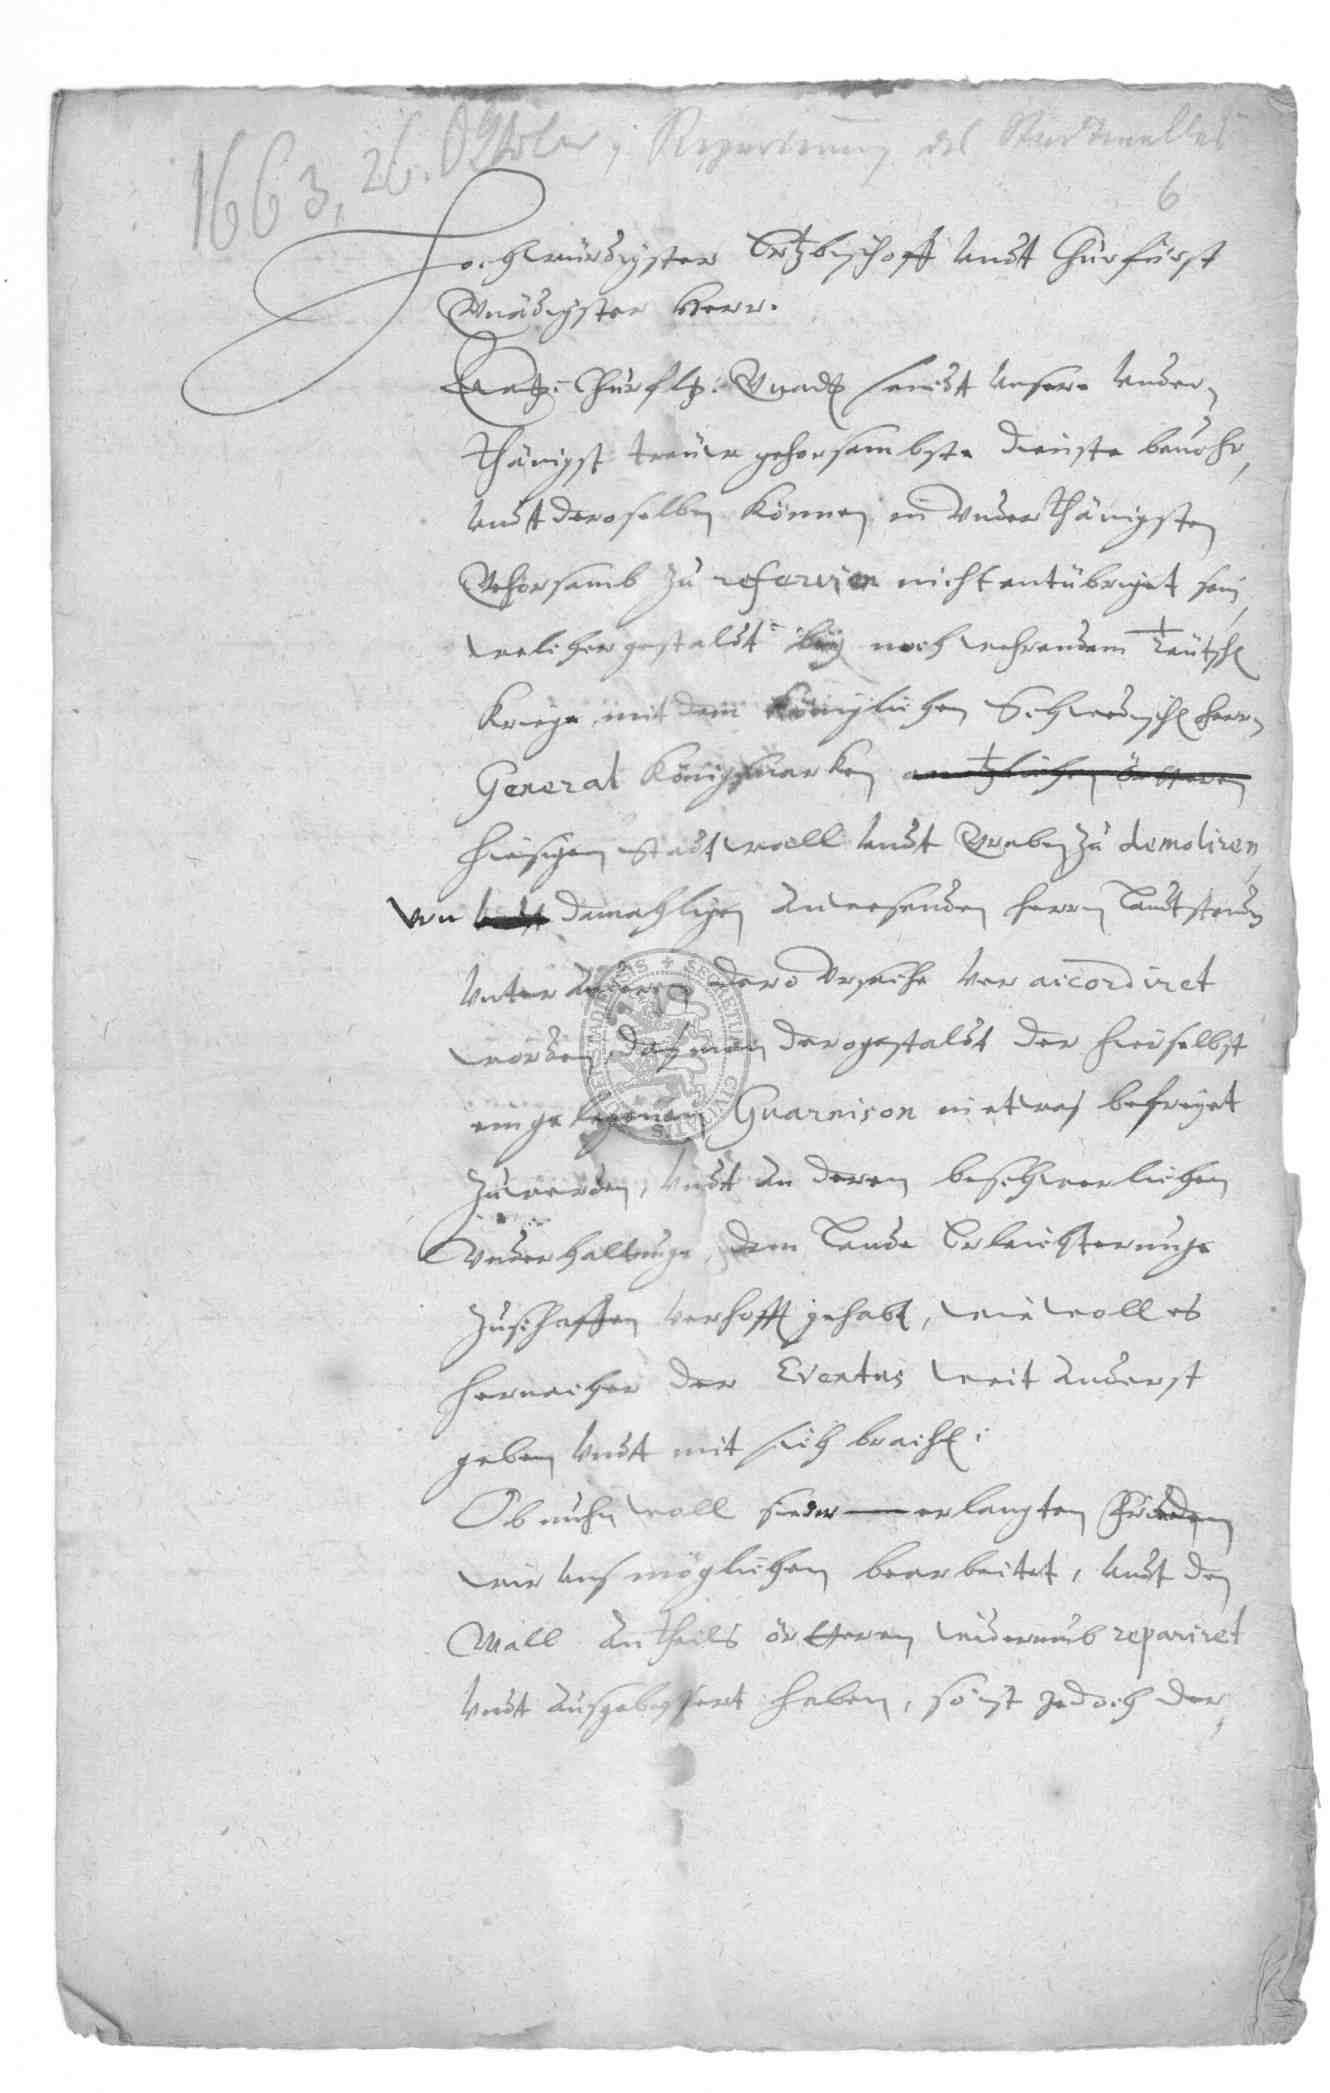 1663, 26. Oktober, Reparierung des Stadtwalles
6
Hochwürdigster Ertzbischoff undt Churfürst
Gnädigster Herr.
Ewg: Churfltg: Gnadt seindt unsere under,
thänigst treüw gehorsambste dienste bevohr,
undt deroselben können in underthänigsten
Gehorsamb zu referiren nicht entübriget sein,
welchergestaldt bey noch wehrendem Teütsch
Kriege mit dem Königlichen Schwedisch herrn
General Königsmarken an etzlichen örtteren
hiesigen Stadtwall undt Graben zu demoliren,
von undt damahligen anwesenden herrn Landtstenden
unter anderen dero Ursache veraccordiret
worden, daß man derogestaldt der hieselbst
eingelegenen Guarnison in etwas befreyet
zu werden, undt an deren beschwerlichen
Underhaltunge, dem Lande Erleichterunge
zuschaffen verhofft gehabt, wiewoll es
hernacher der Eventus weit anderst
geben undt mit sich bracht:
Ob nuhn woll sieder erlangten Frieden
wir uns möglichen bearbeitet, undt den
Wall an theils örtteren widerumb repariret
undt außgebeßert haben, so ist jedoch der,